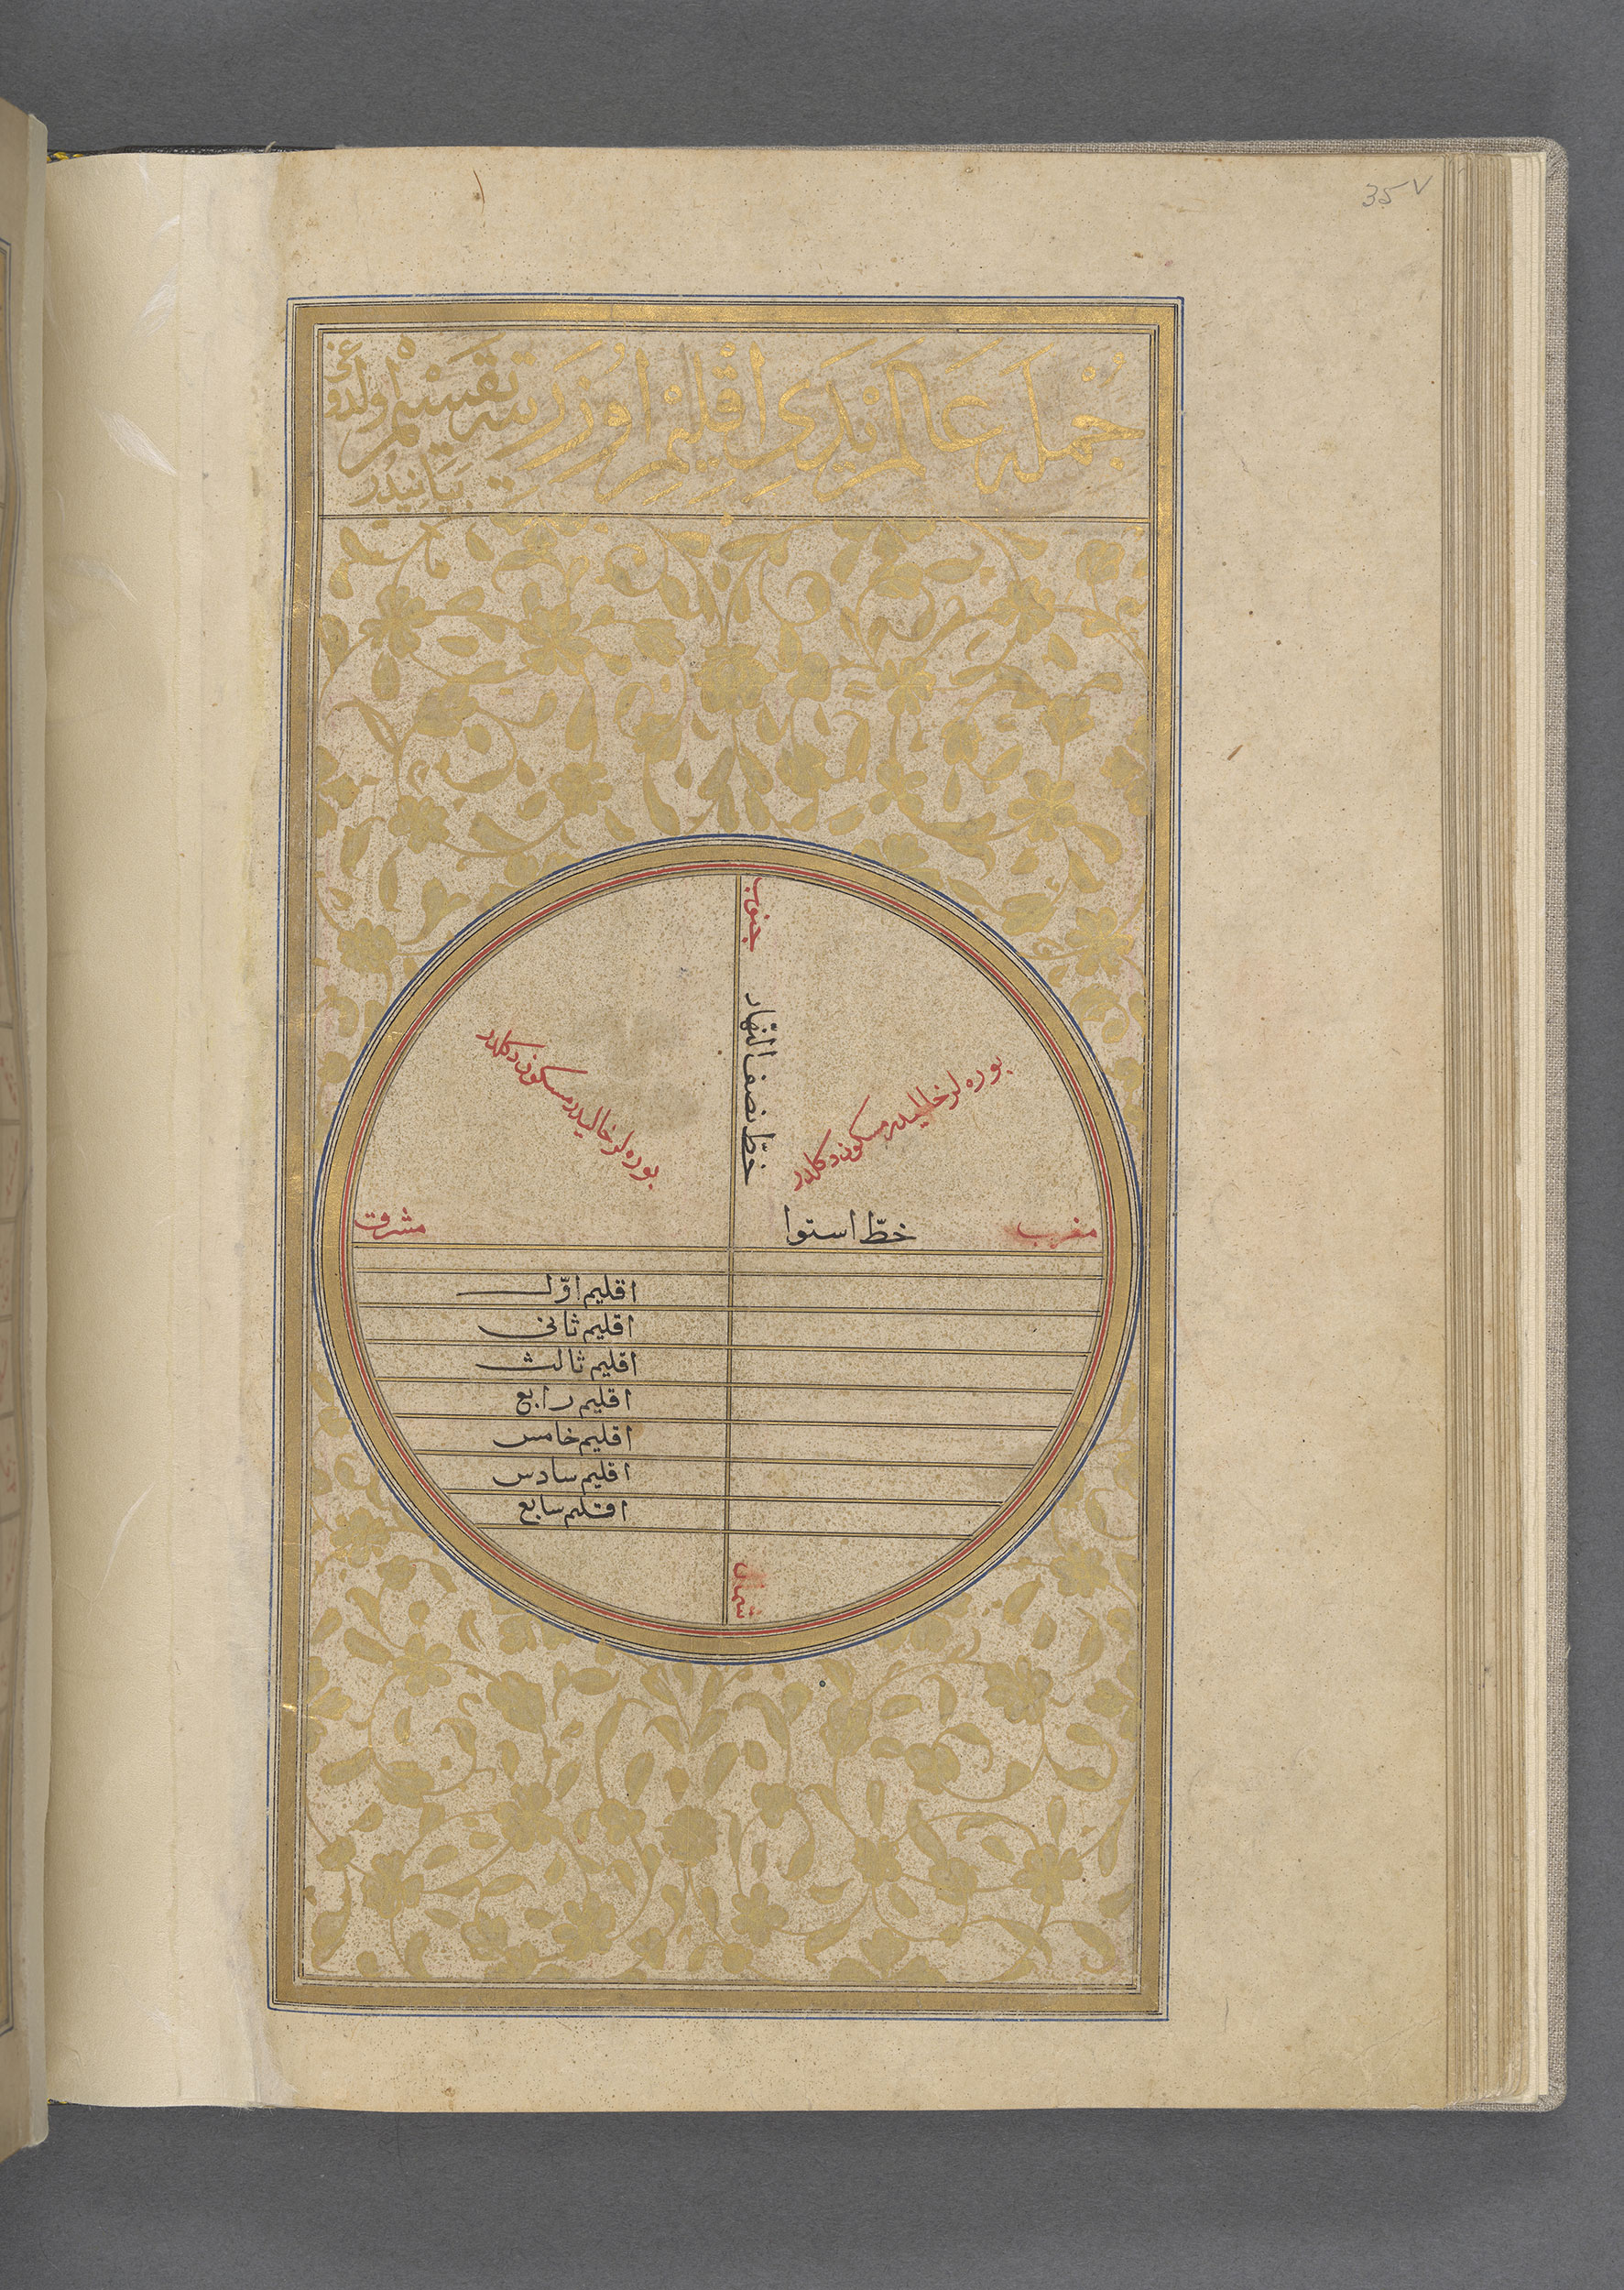 35v
جُمْلَه عَالَم يَدِي اِقْلِيمْ اُوزَرِنه تَقْسِيمْ اولدوغى
بَيَانِيدُر
جنوب
خطّ نصف النّهار
بو ره لر خاليدر مسكون دكلدر
بو ره لر خاليدر مسكون دكلدر
مغرب
خطّ استوا
مشرق
اقليم اوّل
اقليم ثانى
اقليم ثالث
اقليم رابع
اقليم خامس
اقليم سادس
اقليم سابع
شمال